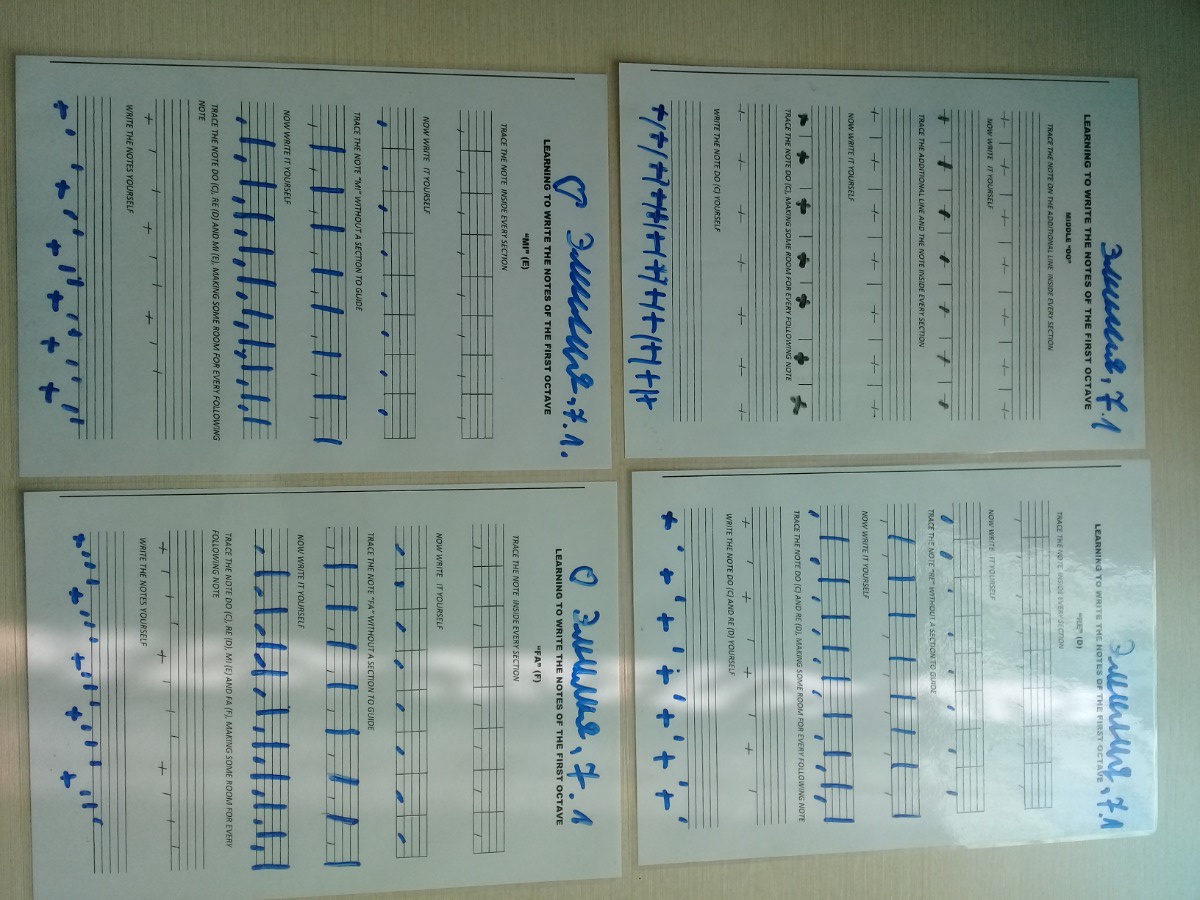 7.1
LEARNING TO WRITE THE NOTES OF THE FIRST OCTAVE
MIDDLE "DO"
TRACE THE NOTE ON THE ADDITIONAL LINE INSIDE EVERY SECTION
NOW WRITE IT YOURSELF
TRACE THE ADDITIONAL LINE AND THE NOTE INSIDE EVERY SECTION
NOW WRITE IT YOURSELF
TRACE THE NOTE DO (C), MAKING SOME ROOM FOR EVERY FOLLOWING NOTE
WRITE THE NOTE DO (C) YOURSELF
7.1
LEARNING TO WRITE THE NOTES OF THE FIRST OCTAVE
"RE" (D)
TRACE THE NOTE INSIDE EVERY SECTION
NOW WRITE IT YOURSELF
TRACE THE NOTE "RE" WITHOUT A SECTION TO GUIDE
NOW WRITE IT YOURSELF
TRACE THE NOTE DO (C) AND RE (D), MAKING SOME ROOM FOR EVERY FOLLOWING NOTE
WRITE THE NOTE DO (C) AND RE (D) YOURSELF
7.1.
LEARNING TO WRITE THE NOTES OF THE FIRST OCTAVE
"MI" (E)
TRACE THE NOTE INSIDE EVERY SECTION
NOW WRITE IT YOURSELF
TRACE THE NOTE "MI" WITHOUT A SECTION TO GUIDE
NOW WRITE IT YOURSELF
TRACE THE NOTE DO (C), RE (D) AND MI (E), MAKING SOME ROOM FOR EVERY FOLLOWING
NOTE
WRITE THE NOTES YOURSELF
7.1
LEARNING TO WRITE THE NOTES OF THE FIRST OCTAVE
"FA" (F)
TRACE THE NOTE INSIDE EVERY SECTION
NOW WRITE IT YOURSELF
TRACE THE NOTE "FA" WITHOUT A SECTION TO GUIDE
NOW WRITE IT YOURSELF
TRACE THE NOTE DO (C), RE (D), MI (E) AND FA (F), MAKING SOME ROOM FOR EVERY
FOLLOWING NOTE
WRITE THE NOTES YOURSELF